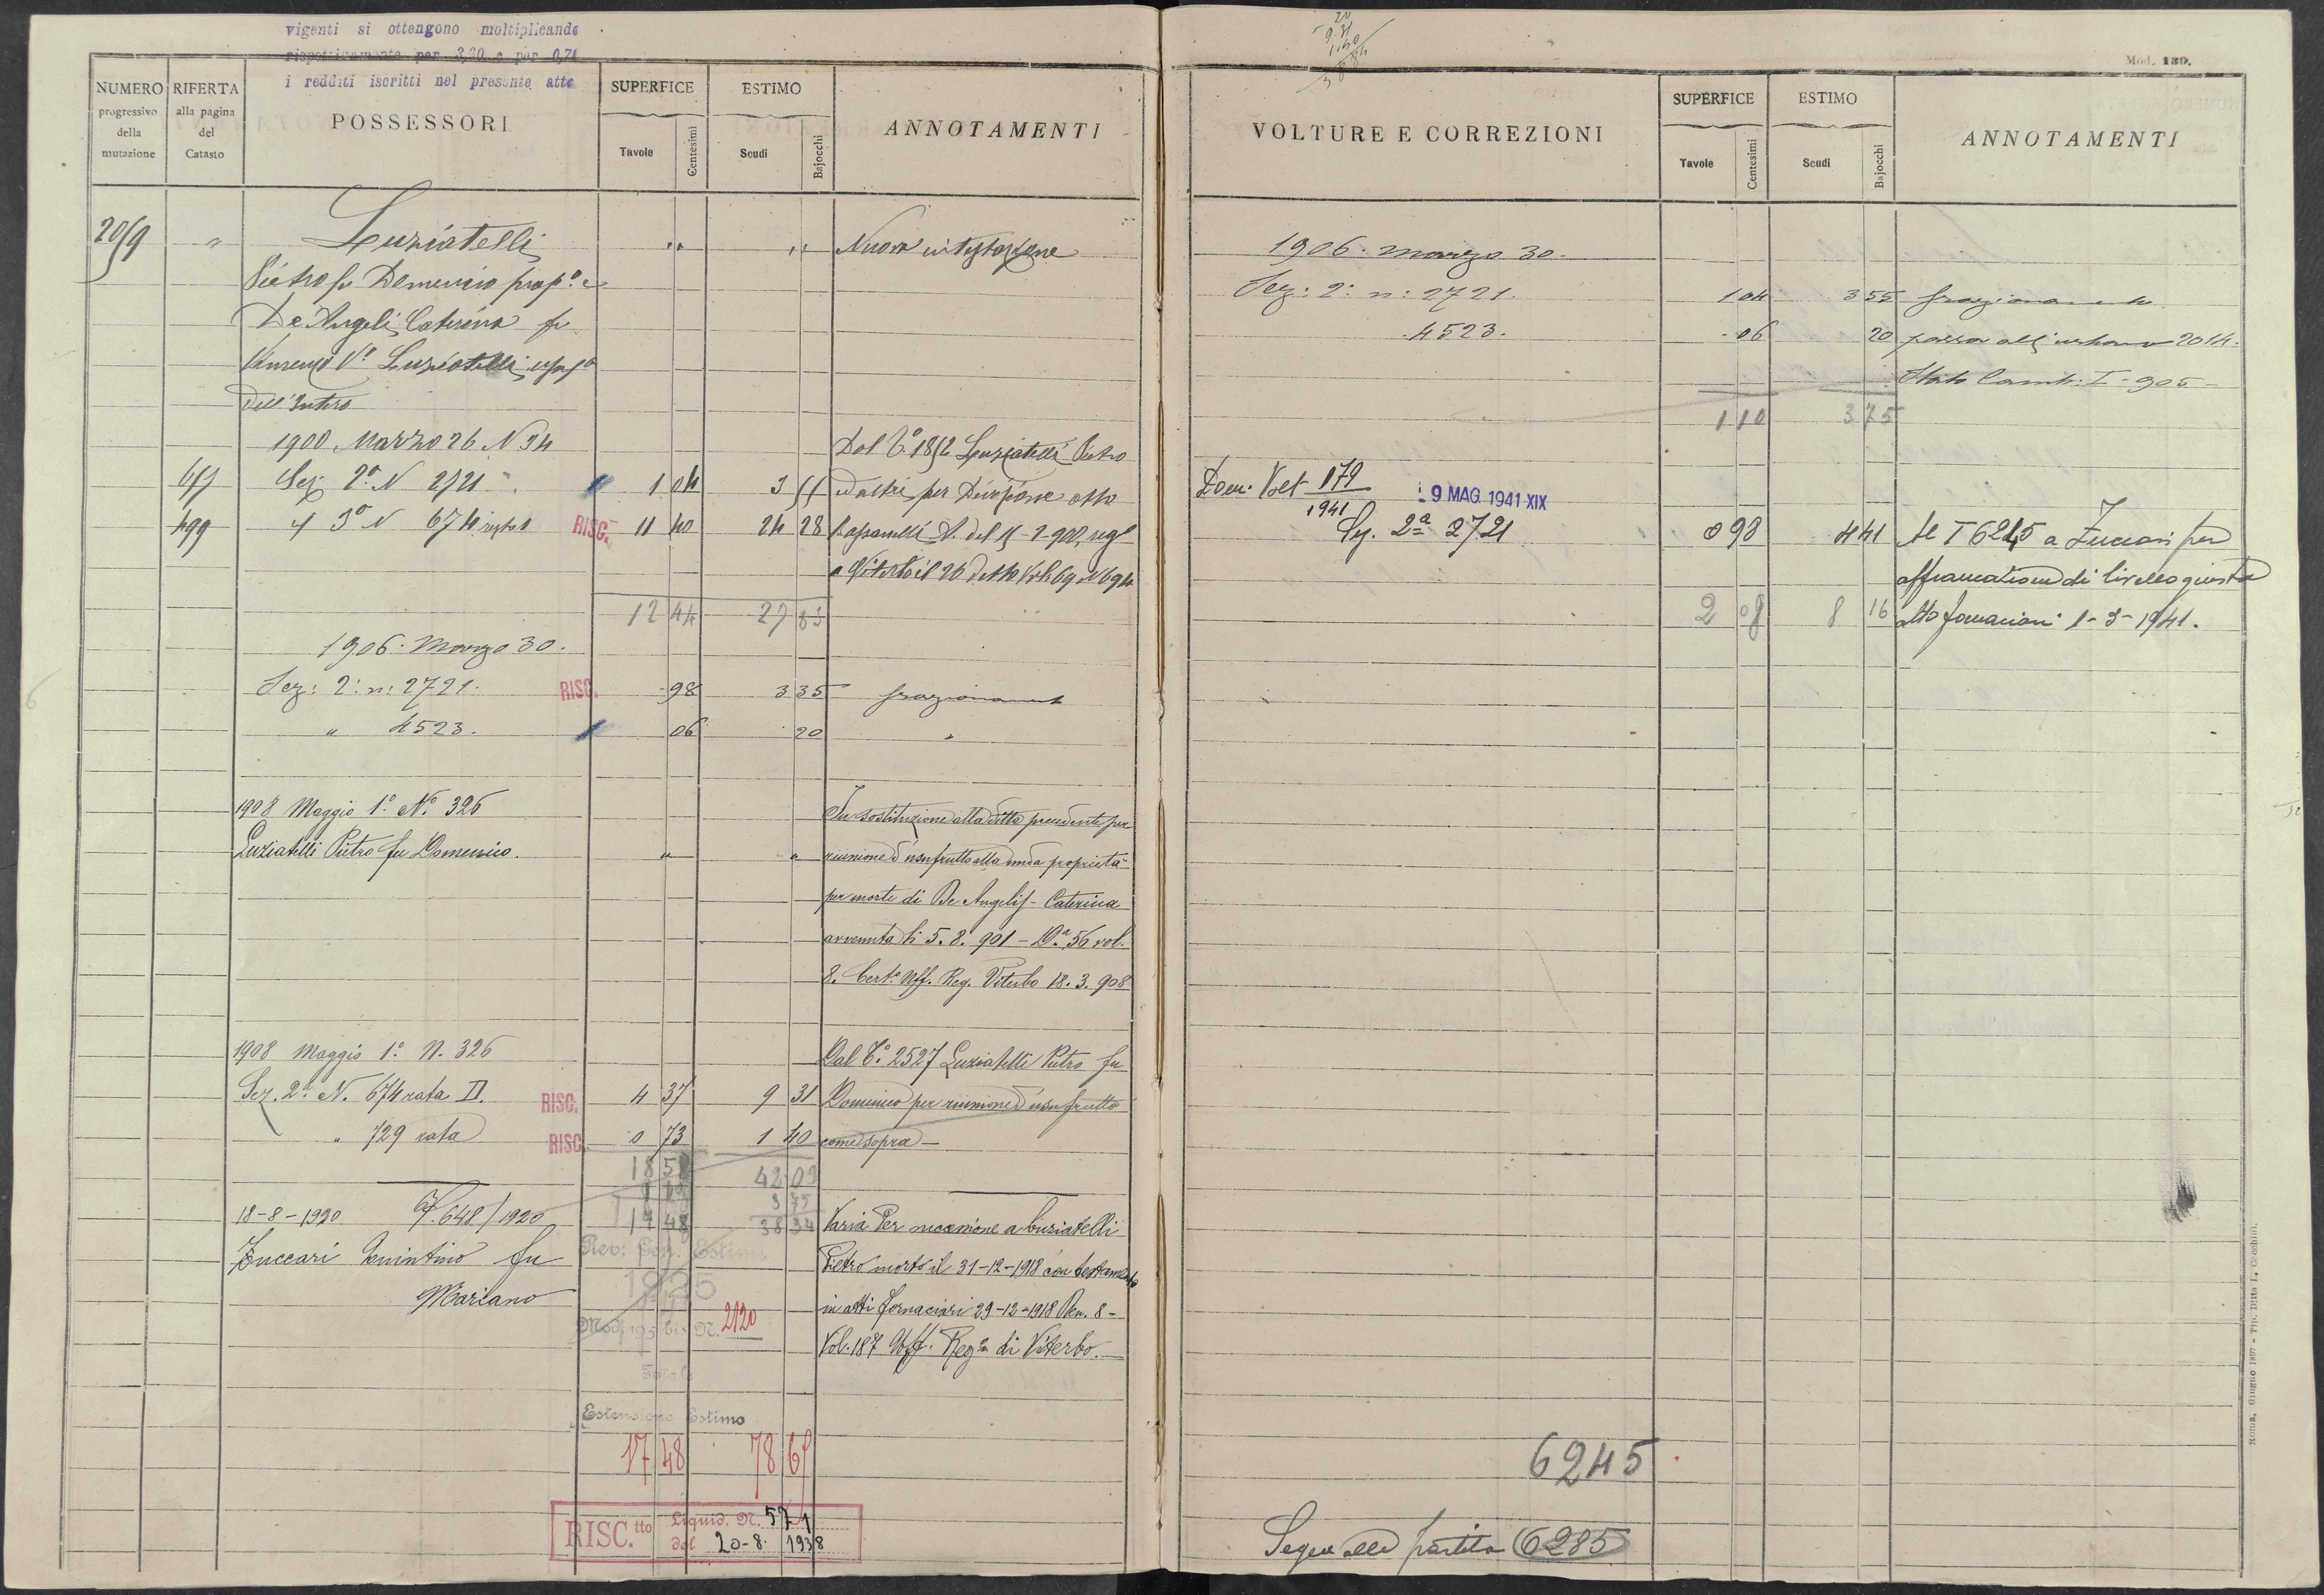 vigenti si ottengono moltiplicando
rispettivamente per 3,20 e per 0,74
i redditi iscritti nel presente atto
NUMERO progressivo della mutazione
RIFERTA alla pagina del Catasto
POSSESSORI
SUPERFICE Tavole Centesimi
ESTIMO Scudi Bajocchi
ANNOTAMENTI
Luziatelli " " Nuova intestazione
Pietro fu Domenico prop.º e
De Angelis Caterina fu
Vª Luziatelli
dell'Intero
1900 Marzo 26 N 34 Dal Cº 1852 Luziatelli Pietro
Sez 2ª N 2721 1 04 3 55 ed altri per Divisione atto
499 " 3ª N 674 RISC. 11 40 24 28
a Viterbo il 26 detto Vol. 69 N 694
12 44 27 83
1906. Marzo 30.
Sez: 2ª n: 2721. RISC. - 98 3 35 frazionamento
" 4523. 06 20 "
1908 Maggio 1º Nº 326 In sostituzione alla ditta precedente per
Luziatelli Pietro fu Domenico. " " riunione d'usufrutto alla nuda proprietà
per morte di De Angelis Caterina
avvenuta li 5. 8. 901 - Dª 56 vol.
8. Certº Uff. Reg. Viterbo 18. 3. 908
1908 Maggio 1º N. 326 Dal Cº 2527 Luziatelli Pietro fu
Sez. 2ª N. 674 rata II. RISC. 4 37 9 31 Domenico per riunione d'usufrutto
" 729 rata RISC. 0 73 1 40 come sopra -
18 58 42 09
3 75
18-8-1920 648/1920 17 48 38 34 Varia Per successione a Luziatelli
Zuccari Quintino fu Rev: Gen. Estimi Pietro morto il 31-12-1918 con testamento
Mariano 1925 in atti Fornaciari 29-12-1918 Den. 8-
Mod. 195 bis N. 2120
Vol. 187 Uff. Regº di Viterbo.
Totale
Estensione Estimo
17 48 78 65
RISC.tto Liquid. N. 571
del 20-8- 1938
Mod. 130.
VOLTURE E CORREZIONI
SUPERFICE Tavole Centesimi
ESTIMO Scudi Bajocchi
ANNOTAMENTI
1906. Marzo 30.
Sez: 2ª n: 2721. 1 04 3 55 frazionamento
4523. - 06 20 passa all'urbano 2014.
Stato Camb: I - 905 -
1 10 3 75
Dom. Volt 179
1941
- 9 MAG. 1941 XIX
Sez. 2ª 2721 0 98 4 41 Al T 6245 a Zuccari per
affrancazione di livello giusta
2 08 8 16 atto Fornaciari 1-3-1941.
6245
Segue alla partita 6285
Roma, Giugno 1897 - Tip. Ditta L. Cecchini.